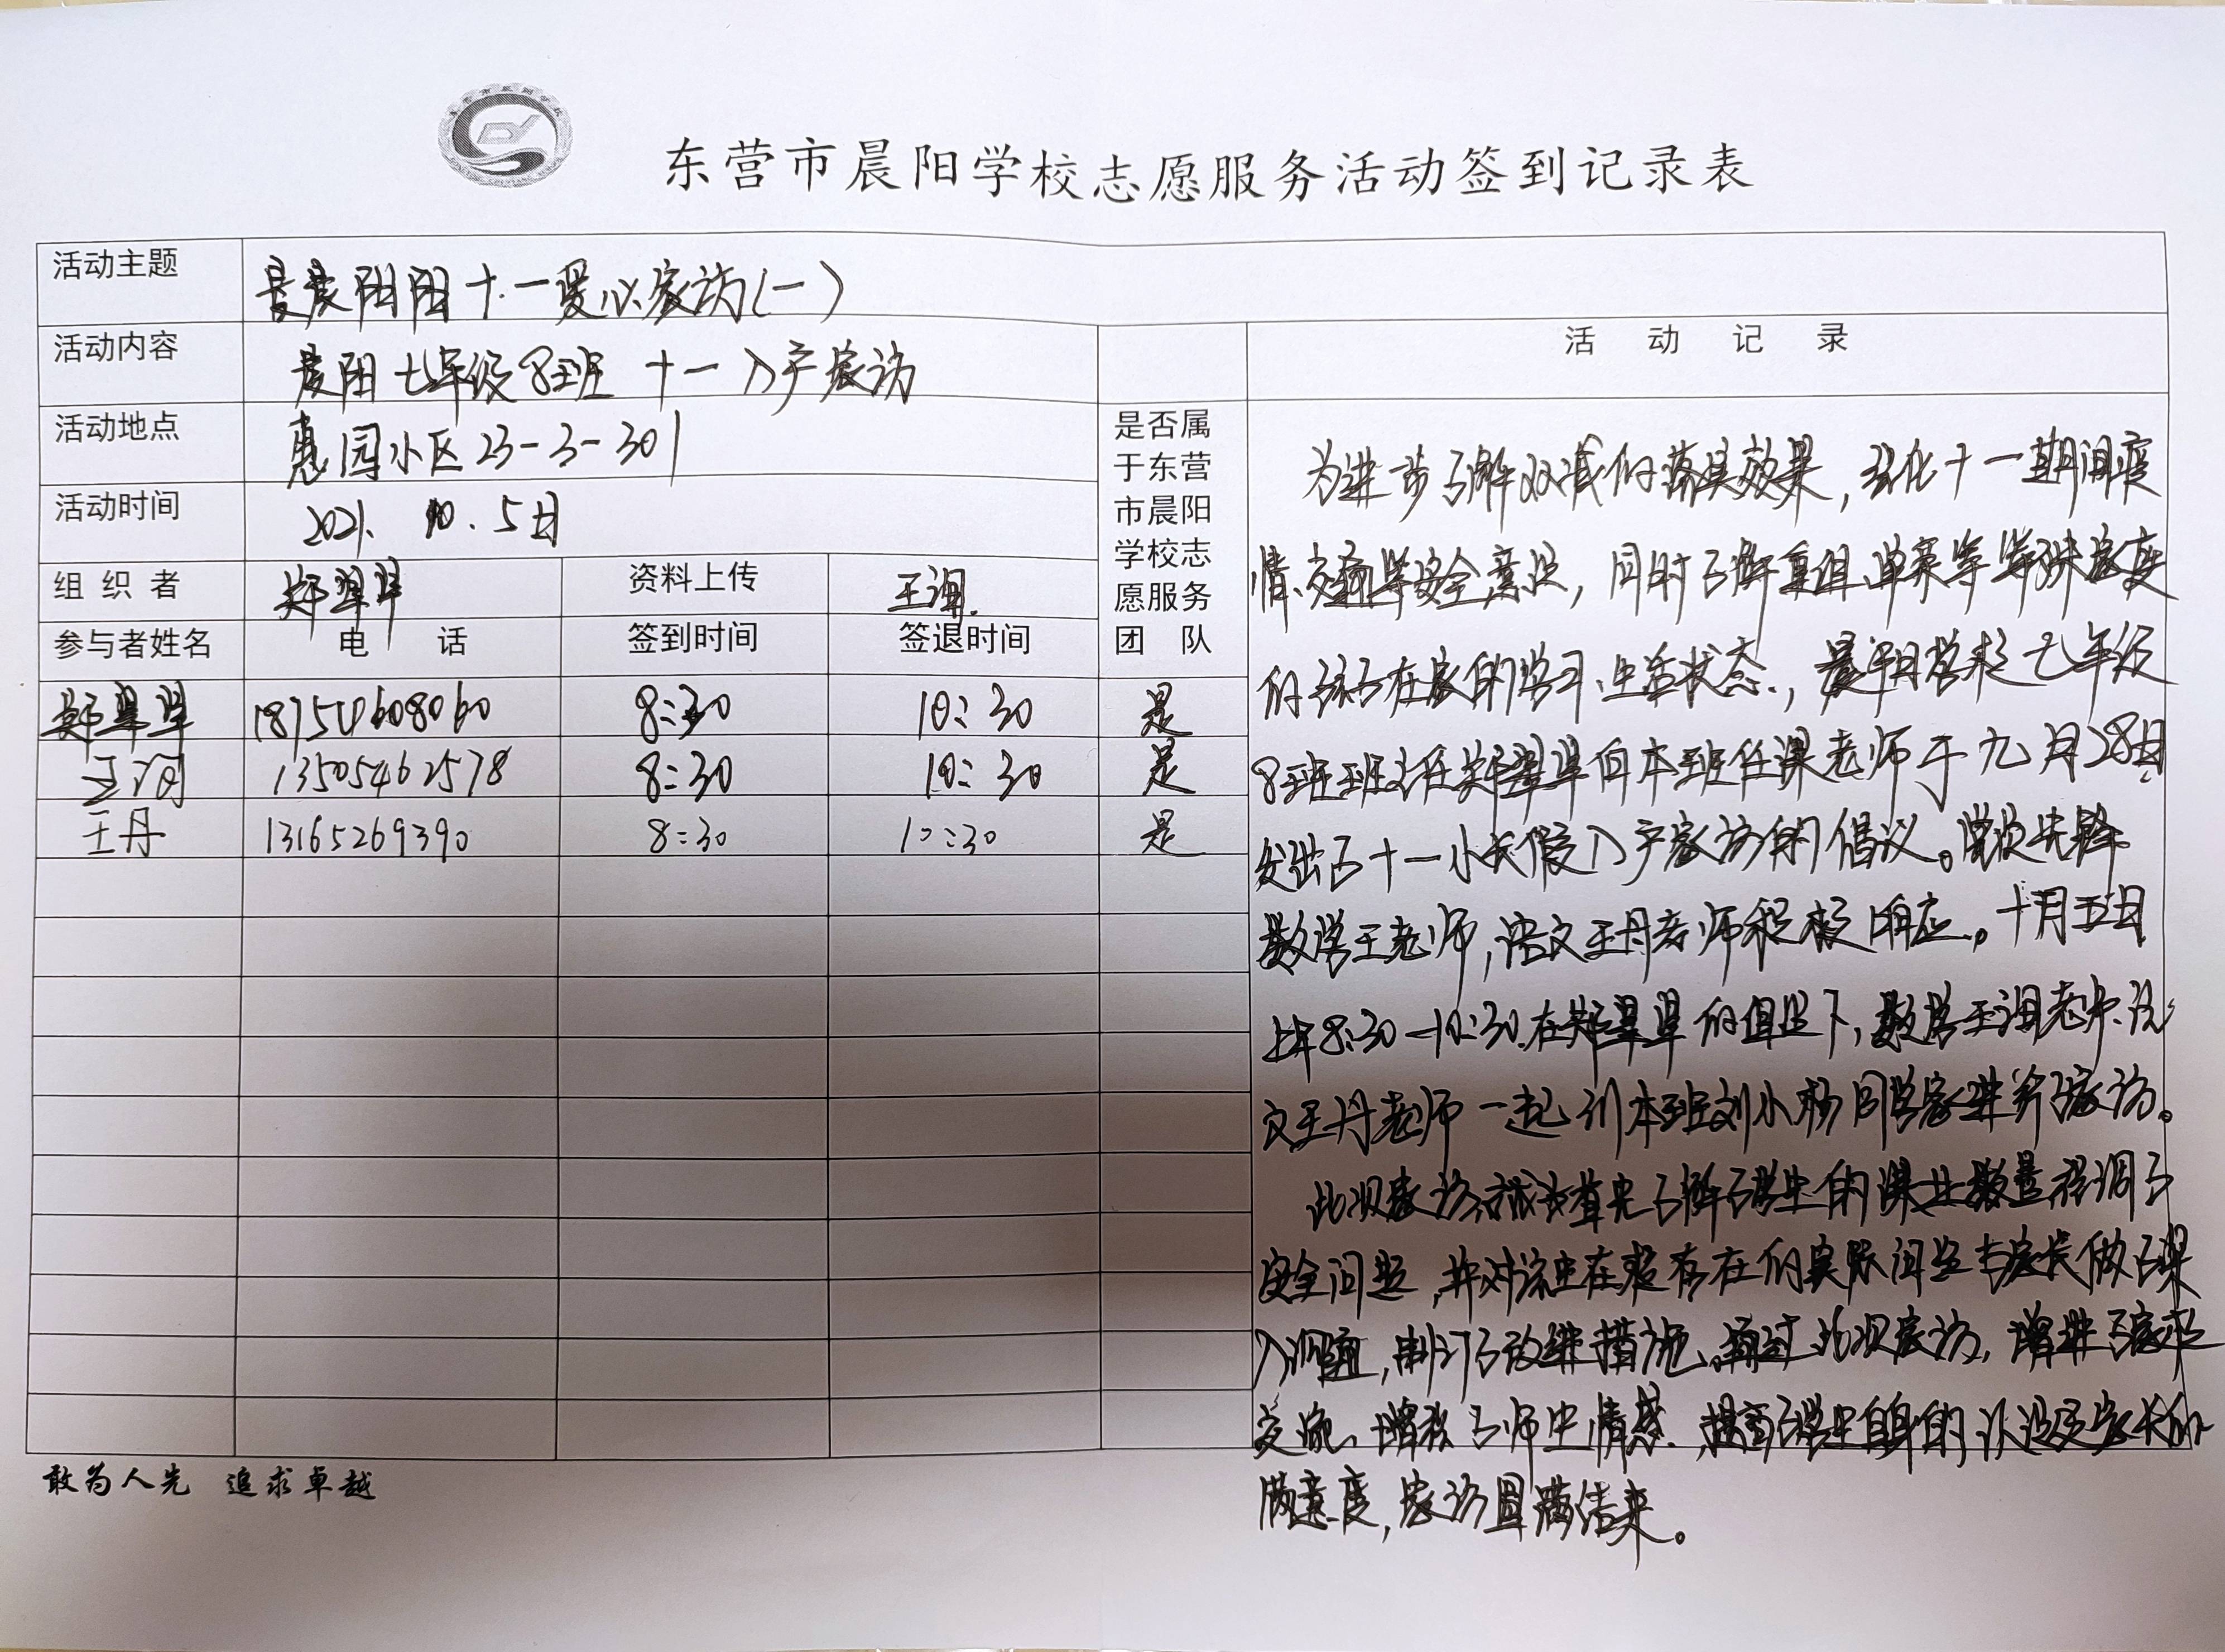 东营市晨阳学校志愿服务活动签到记录表
活动主题 晨晨阳阳十.一爱心家访(一)
活动内容 晨阳七年级8班 十一入户家访
活动地点 惠园小区23-3-301
活动时间 2021. 10. 5日
组织者 郑翠翠 资料上传 王洵.
参与者姓名 电话 签到时间 签退时间 是否属于东营市晨阳学校志愿服务团队
郑翠翠 18750608060 8:30 10:30 是
王洵 13505462578 8:30 10:30 是
王丹 13165269390 8:30 10:30 是
活动记录
为进步了解双减的落实效果,强化十一期间疫
情、交通等安全意识,同时了解重组、单亲等特殊家庭
的孩子在家的学习、生活状态.,晨阳学校七年级
8班班主任郑翠翠向本班任课老师于九月28日
发出了十一小长假入户家访的倡议。党员先锋
数学王老师,语文王丹老师积极响应。十月五日
上午8:30-10:30.在郑翠翠的组织下,数学王洵老师、语
文王丹老师一起到本班刘小杨同学家进行了家访。
此次家访,首先了解了学生的课业数量强调了
安全问题,并对该生在校存在的实际问题与家长做了深
入沟通,制订了改进措施。通过此次家访,增进了家校
交流、增强了师生情感.提高了学生自身的认识及家长的
满意度,家访圆满结束。
敢为人先 追求卓越